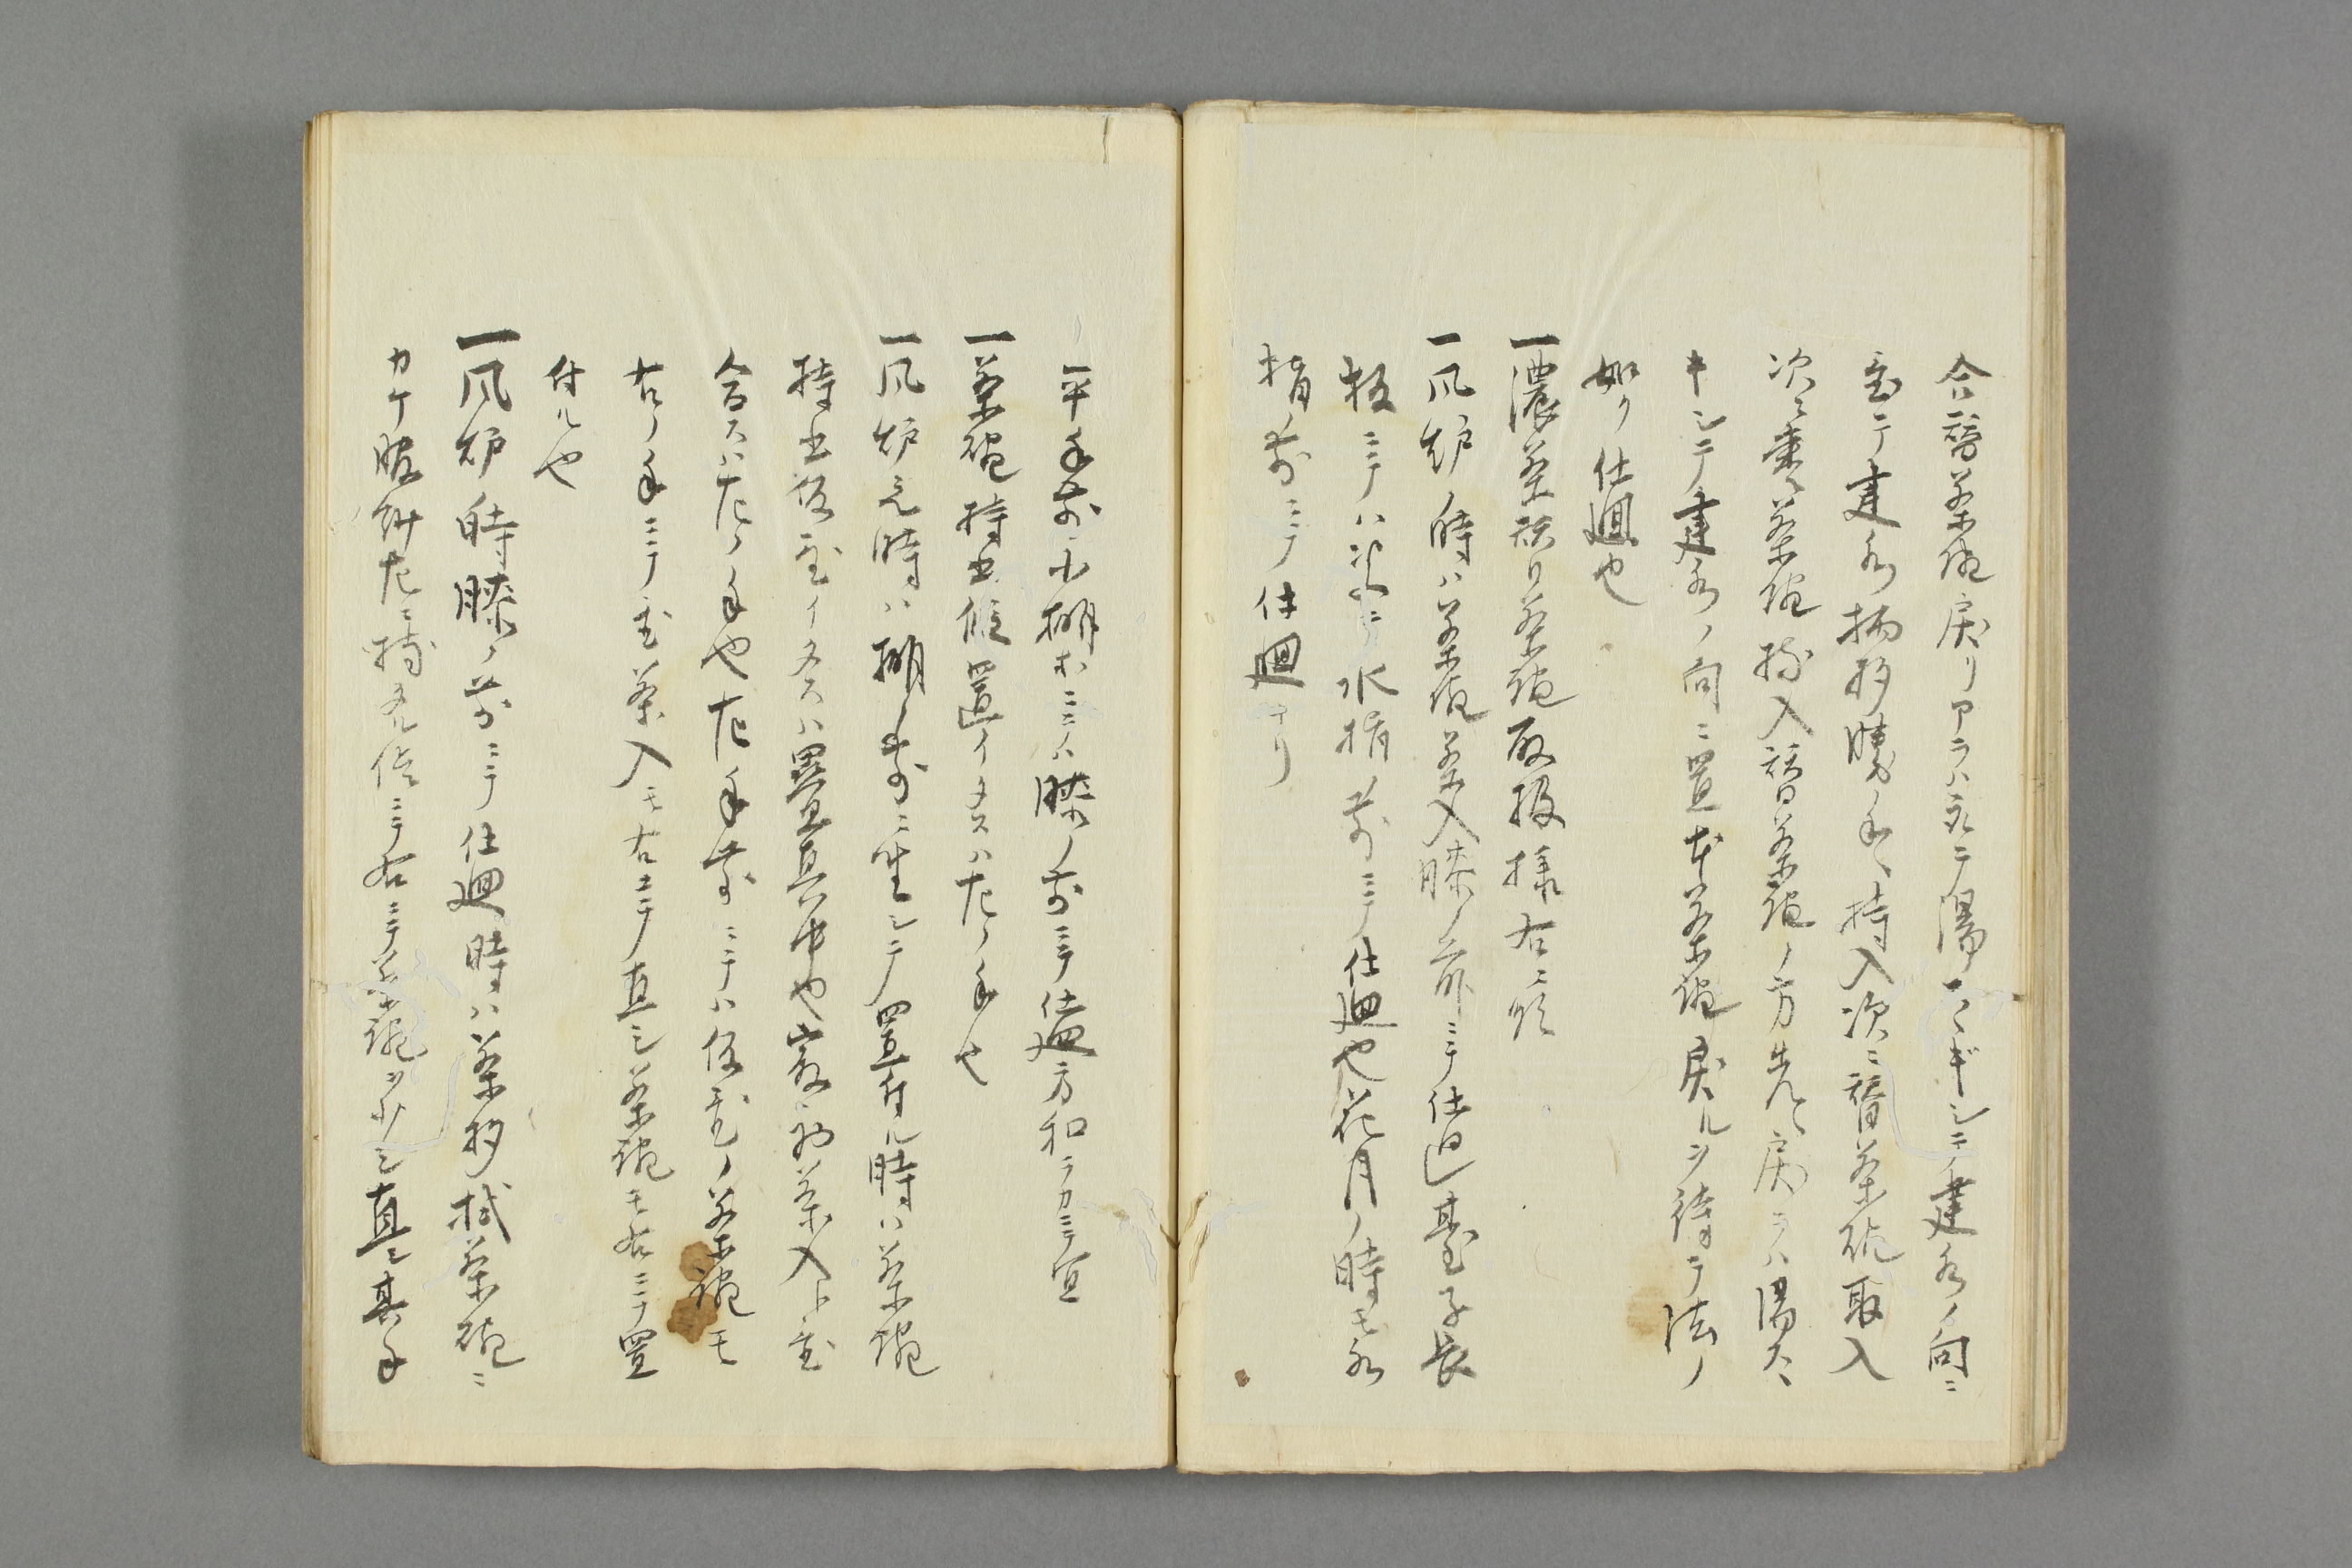 合替茶碗戻リアラハ取テ湯スヽギシテ建水ノ向ニ
置テ建水柄杓勝手ヘ持入次ニ替茶碗取入
次ニ重茶碗持入替茶碗ノ方先ヘ戻ラハ湯スヽ
キシテ建水ノ向ニ置本茶碗戻ルヲ待テ法ノ
如ク仕廻也
一濃茶替茶碗取扱様右ニ
一風炉ノ時ハ茶碗茶入膝ノ前ニテ仕廻臺子長
板ニテハ水指ノ前ニテ仕廻也花月ノ時モ水
指ノ前ニテ仕廻ナリ
一平手前小棚ホニテハ膝ノ前ニテ仕廻方和ラカニテ宜
一茶碗持出候置イタスハ左ノ手也
一風炉先時ハ棚ノ前ニ坐シテ置付ル時ハ茶碗
持出仮置イタスハ畳真中也最初茶入ト置
合スハ左ノ手也左手前ニテハ仮置ノ茶碗モ
右ノ手ニテ置茶入モ右ニテ直シ茶碗モ右ニテ置
付ル也
一風炉ノ時膝ノ前ニテ仕廻時ハ茶杓拭茶碗ニ
カケ服紗左ニ持タル侭ニテ右ニテ茶碗ヲ少シ直シ其手